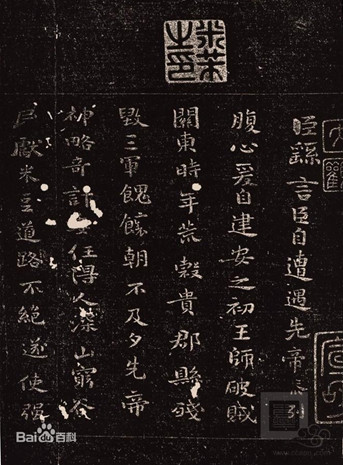 米芾之印
臣繇言臣自遭遇先帝忝列
腹心爰自建安之初王師破賊
關東時年荒穀貴郡縣殘
毀三軍餽饟朝不及夕先帝
神略奇計委任得人深山窮谷
民獻米豆道路不絕遂使強
Bai百科